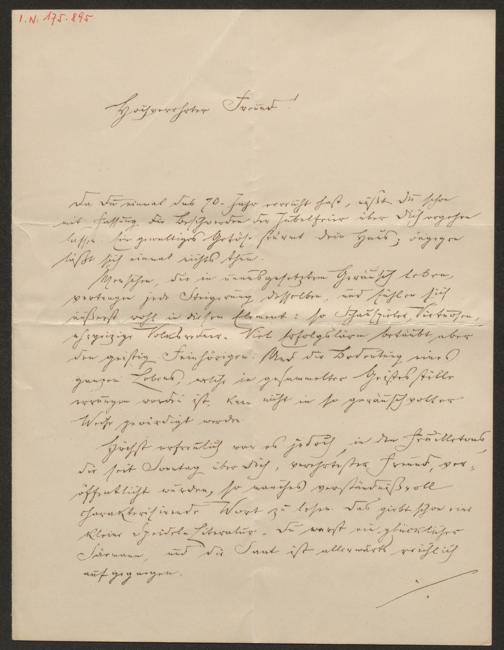 I.N. 175.895
Hochverehrter Freund!
Da Du einmal das 70. Jahr erreicht hast, mußt Du schon
mit Fassung die Beschwerden der Jubelfeier über Dich ergehen
lassen. Ein gewaltiges Getöse stürmt Dein Haus; dagegen
läßt sich einmal nichts thun.
Menschen, die in ununterbrochenem Geräusch leben,
vertragen jede Steigerung desselben, und fühlen sich
äußerst wohl in diesem Element: so Schauspieler, Virtuosen,
ehrgeizige Volksredner. Viel Erfolgslärm betäubt aber
den geistig Feinhörigen. Und die Bedeutung eines
ganzen Lebens, welche in gesammelter Geistesstille
errungen worden ist, kann nicht in so geräuschvoller
Weise gewürdigt werden.
Höchst erfreulich war es jedoch, in den Feuilletons,
die seit Sonntag über Dich, verehrtester Freund, ver-
öffentlicht wurden, so manches verständnißvoll
charakterisirende Wort zu lesen. Das giebt schon eine
kleine Speidel-Literatur. Du warst ein glücklicher
Säemann, und die Saat ist allerwärts reichlich
aufgegangen.